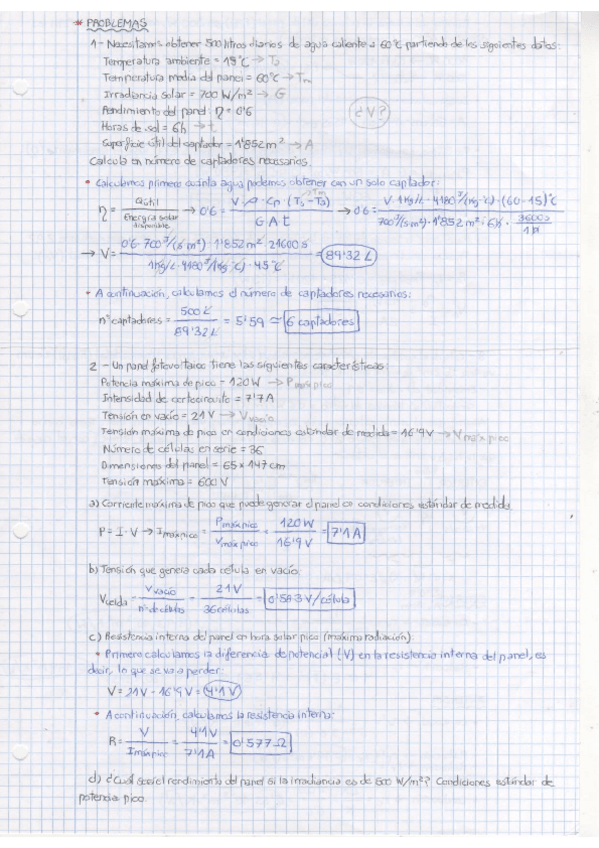 * PROBLEMAS
1- Necesitamos obtener 500 litros diarios de agua caliente a 60°C partiendo de los siguientes datos:
Temperatura ambiente = 15°C → Ta
Temperatura media del panel = 60°C → Tm
Irradiancia solar = 700 W/m² → G
Rendimiento del panel: η = 0'6
¿V?
Horas de sol = 6h → t
Superficie útil del captador = 1'852 m² → A
Calcula en número de captadores necesarios.
* Calculamos primero cuánta agua podemos obtener con un solo captador:
η = Qútil / Energía solar disponible → 0'6 = V·ρ·Cp·(Ts-Ta) / G A t → 0'6 = V·1Kg/L·4180 J/(Kg·°C)·(60-15)°C / 700 J/(s·m²)·1'852 m²·6h·3600s/1h
→ V = 0'6·700 J/(s·m²)·1'852 m²·21600 s / 1Kg/L·4180 J/(Kg·°C)·45°C = 89'32 L
* A continuación, calculamos el número de captadores necesarios:
nº captadores = 500 L / 89'32 L = 5'59 ≃ 6 captadores
2 - Un panel fotovoltaico tiene las siguientes características:
Potencia máxima de pico = 120W → Pmáx pico
Intensidad de cortocircuito = 7'7A
Tensión en vacío = 21V → Vvacío
Tensión máxima de pico en condiciones estándar de medida = 16'9V → Vmáx pico
Número de células en serie = 36
Dimensiones del panel = 65 x 147 cm
Tensión máxima = 600 V
a) Corriente máxima de pico que puede generar el panel en condiciones estándar de medida.
P = I·V → Imáx pico = Pmáx pico / Vmáx pico = 120W / 16'9V = 7'1 A
b) Tensión que genera cada célula en vacío:
Vcelda = Vvacío / nº de células = 21V / 36 células = 0'583 V/célula
c) Resistencia interna del panel en hora solar pico (máxima radiación)
* Primero calculamos la diferencia de potencial (V) en la resistencia interna del panel, es
decir, lo que se va a perder:
V = 21V - 16'9V = 4'1 V
* A continuación, calculamos la resistencia interna:
R = V / Imáx pico = 4'1V / 7'1 A = 0'577 Ω
d) ¿Cuál será el rendimiento del panel si la irradiancia es de 500 W/m²? Condiciones estándar de
potencia pico.